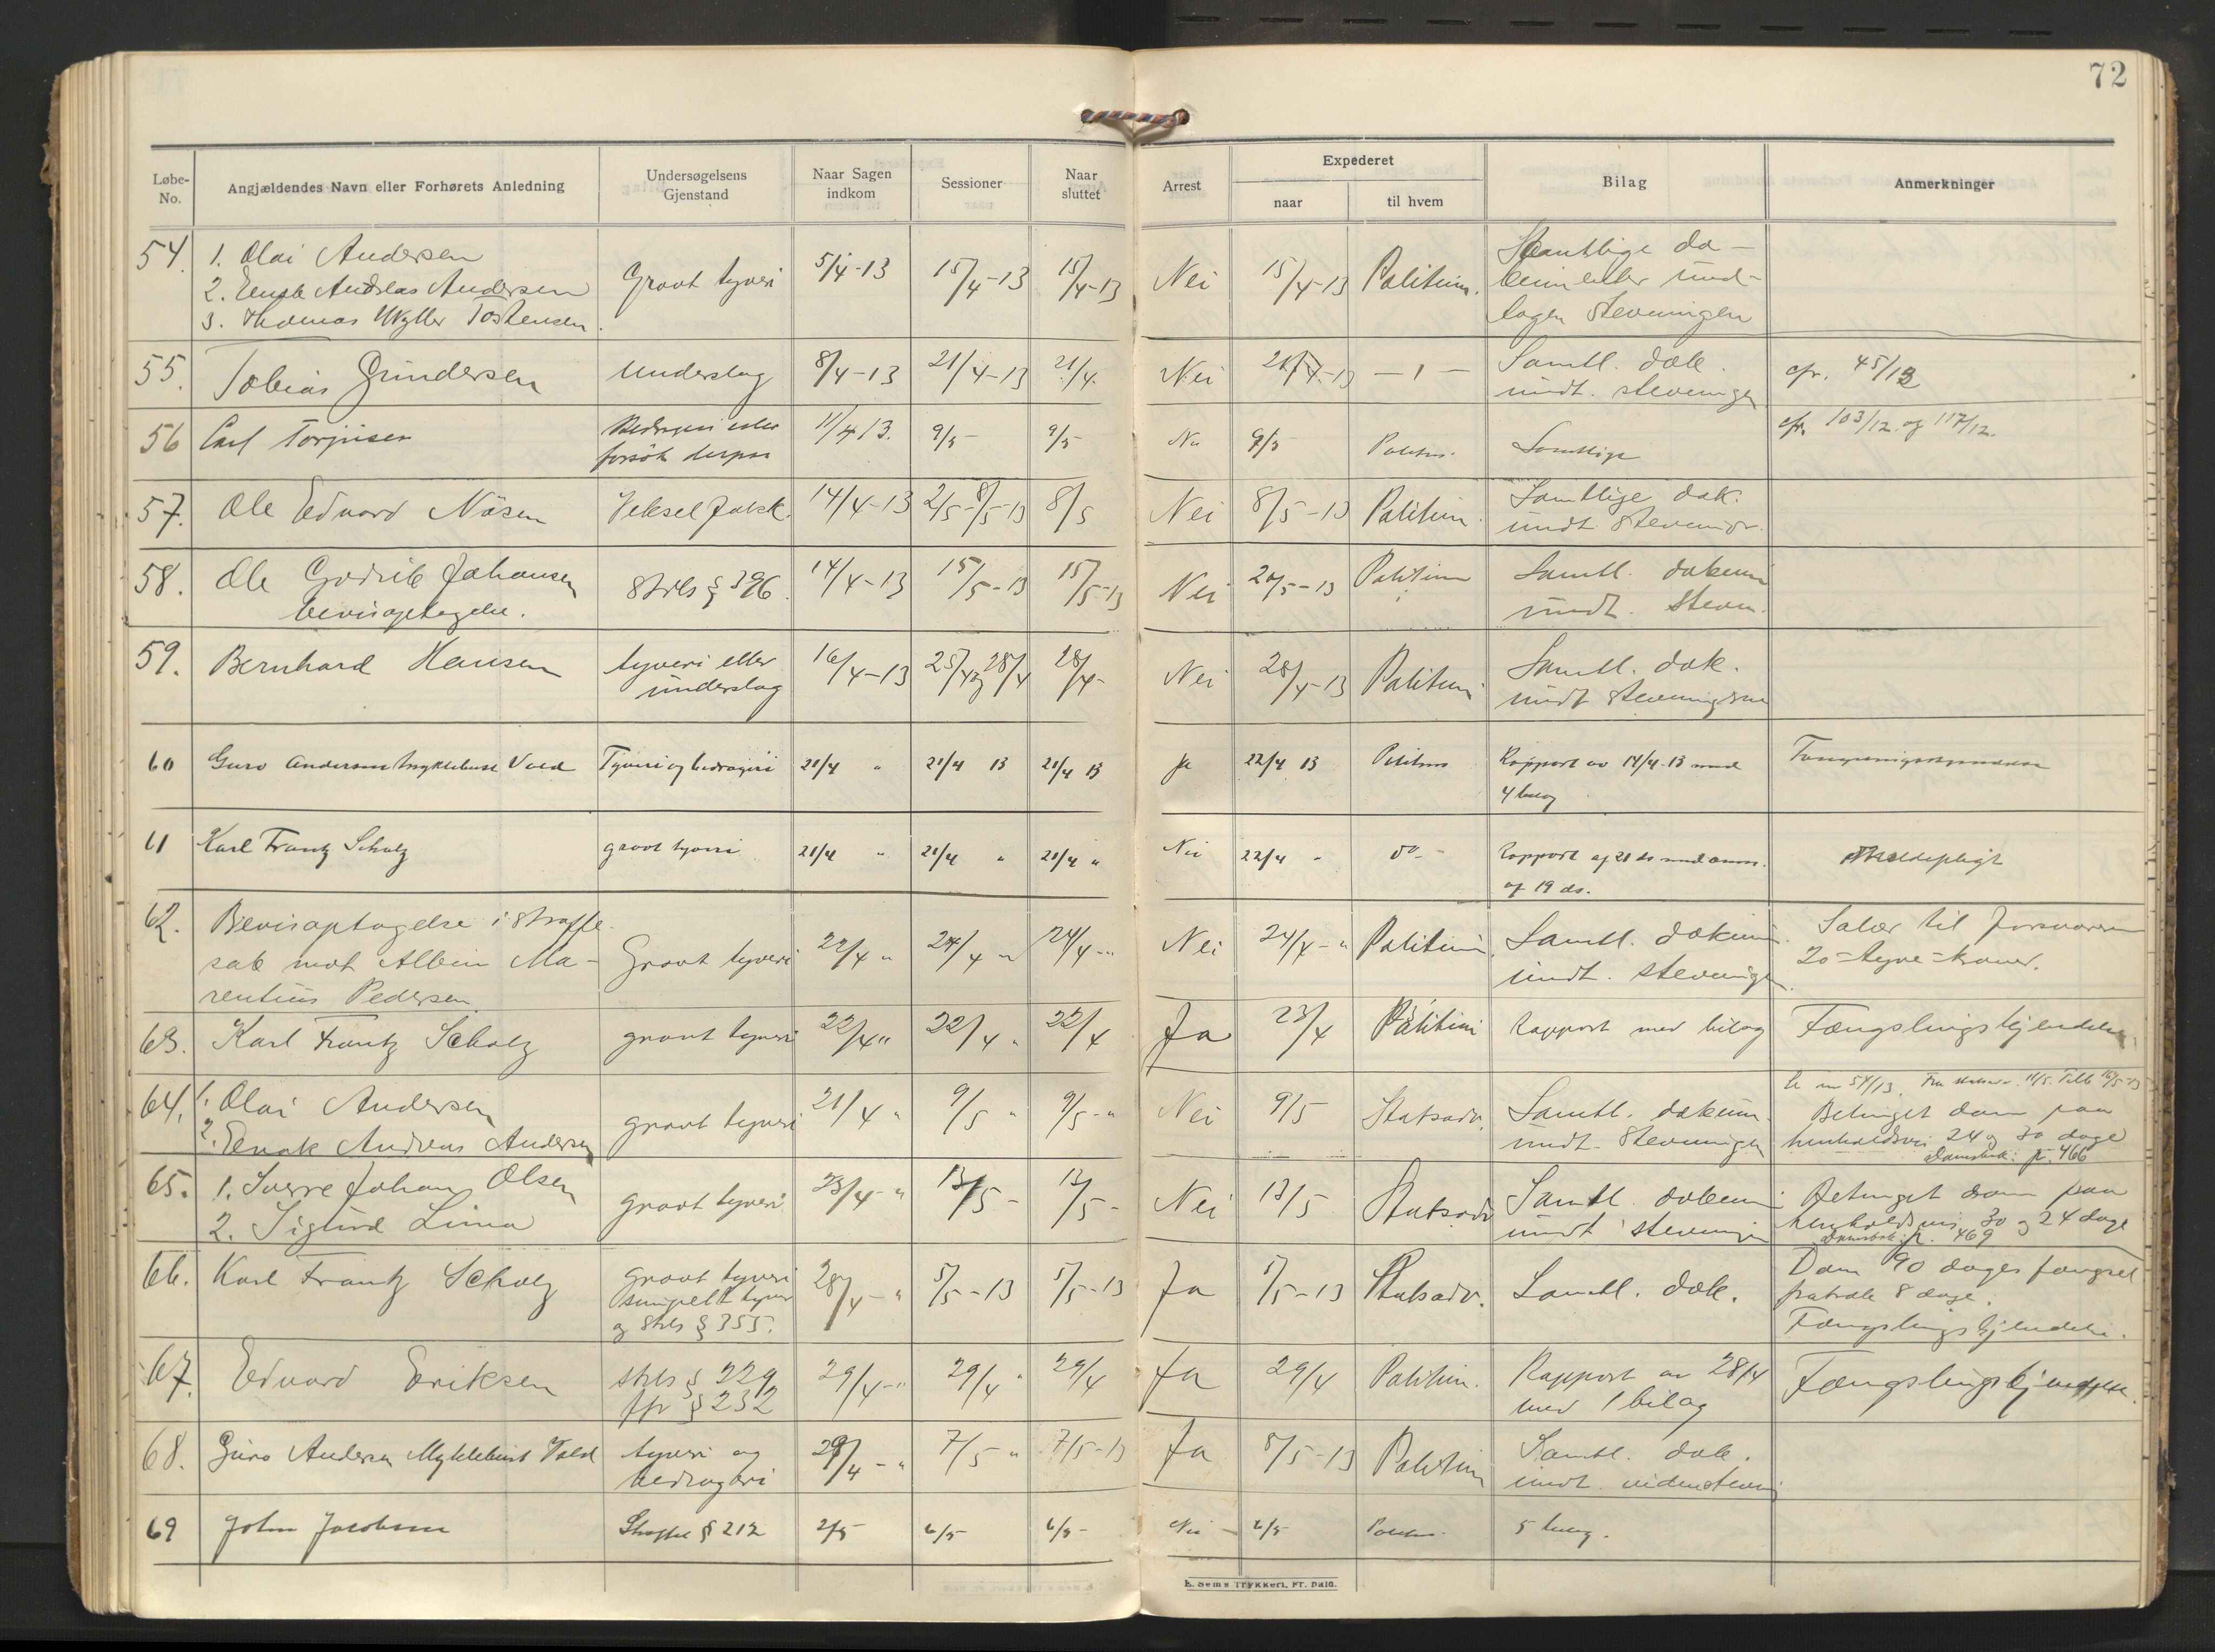 72
Løbe-No. Angjældendes Navn eller Forhørets Anledning Undersøgelsens Gjenstand Naar Sagen indkom Sessioner Naar sluttet Arrest Expederet naar til hvem Bilag Anmerkninger
54. 1. Olai Andersen
2. Enok Andreas Andersen
3. Thomas Wyller Tostensen.
Grovt tyveri 5/4-13 15/4-13 15/4-13 Nei 15/4-13 Politiun.
Samtlige do-
undtagen stevningen
55. Tobias Gundersen Underslag 8/4-13 21/4-13 21/4. Nei 21/4-13 — " —
Samtl. dok.
undt. stevningen
cfr. 45/12
56 Carl Torjusen
Bedrageri eller
forsøk derpaa
11/4 13. 9/5- 9/5- Nei 9/5 Samtlige
cfr. 103/12 og 117/12.
57. Ole Edvard Nåsen Veksel falsk. 14/4-13 2/5-8/5-13 8/5 Nei 8/5-13 Politiun.
Samtlige dok.
undt.
58. Ole Godrik Johansen
bevisoptagelse.
Strls § 396. 14/4-13 15/5-13 15/5-13 Nei 20/5-13 Politiun
Samtl. dokum
undt. stevn.
59. Bernhard Hansen
tyveri eller
underslag
16/4-13 25/4 og 28/4 28/4- Nei 28/4-13 Politiun
Samtl. dok.
undt
60 Guro Andersen Myklebust Vold Tyveri og bedrageri 21/4 " 21/4 13 21/4 13 Ja 22/4 13
Rapport av 14/4-13 med
4 bilag
61 Karl Frantz Scholz grovt tyveri 21/4 " 21/4 " 21/4 " Nei 22/4 " do -
Rapport af 21 ds med anm.
af 19 ds.
Meldepligt
62. Bevisoptagelse i straffe-
sak mot Albin Ma-
rentius Pedersen
Grovt tyveri 22/4 " 24/4 " 24/4-" Nei 24/4-" Politiun.
Samtl. dokum.
undt. stevningen.
Salær til forsvareren
20-tyve-kroner.
63. Karl Frantz Scholz grovt tyveri 22/4 " 22/4 " 22/4 Ja 23/4 Politiun Rapport med bilag Fængslingskjendelse.
64. 1. Olai Andersen
2. Enok Andreas Andersen
grovt tyveri 21/4 " 9/5 " 9/5-" Nei 9/5 Statsadv.
Samtl. dokum.
undt. stevningen
Betinget dom paa
henholdsvis 24 og 30 dage
Domsbok: p. 466
65. 1. Sverre Johan Olsen
2. Sigurd Lima
grovt tyveri 23/4-" 13/5- 13/5- Nei 13/5 Statsadv
Samtl. dokum
undt stevningen
Betinget dom paa
henholdsvis 30 og 24 dage
Domsbok: p. 469
66. Karl Frantz Scholz
grovt tyveri
simpelt tyveri
og strls § 355.
28/4-" 5/5-13 5/5-13 Ja 5/5-13 Statsadv. Samtl. dok.
Dom 90 dages fængsel
fratrale 8 dage.
Fængslingskjendelse.
67. Edvard Eriksen
strls § 229
jfr § 232
29/4-" 29/4 " 29/4 Ja 29/4 Politiun.
Rapport av 28/4
med 1 bilag
Fængslingskjendelse.
68. Guro Andersen Myklebust Vold
tyveri og
bedrageri
29/4-" 7/5 " 7/5-13 Ja 8/5-13 Politiun
Samtl. dok.
undt.
69 John Jacobsen Straffel § 212 2/5 6/5- 6/5- Nei - 6/5- 5 bilag.
E. Sems Trykkeri, Fr. hald.